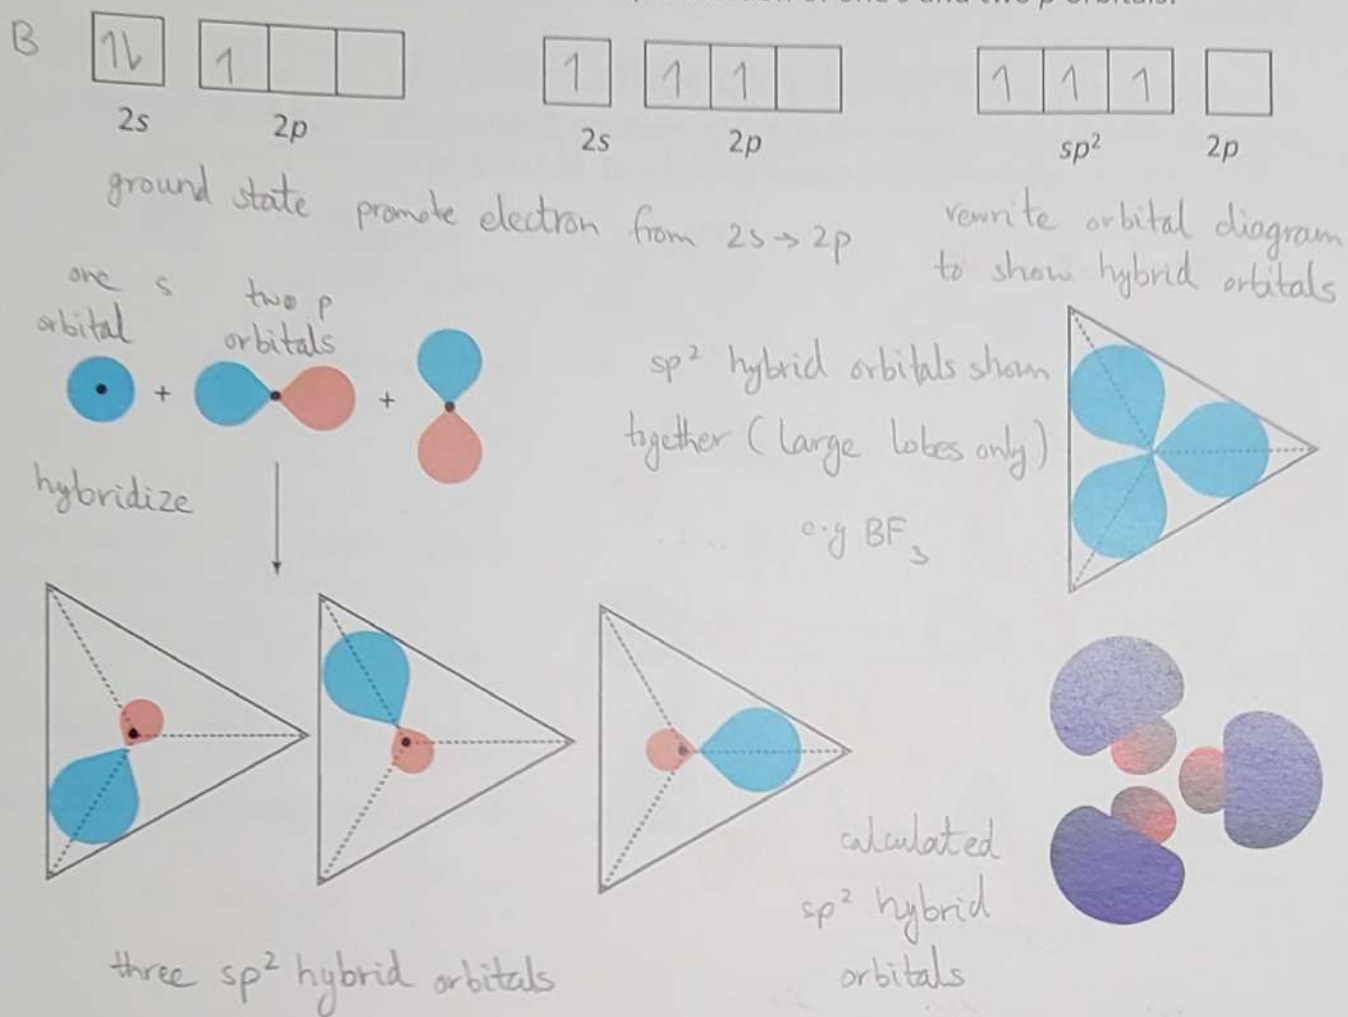 B
1⇂ 1
1 1 1
1 1 1
2s 2p
2s 2p
sp² 2p
ground state promote electron from 2s → 2p
rewrite orbital diagram
to show hybrid orbitals
one s
orbital
two p
orbitals
+ +
hybridize
sp² hybrid orbitals shown
together (large lobes only)
e.g BF₃
three sp² hybrid orbitals
calculated
sp² hybrid
orbitals